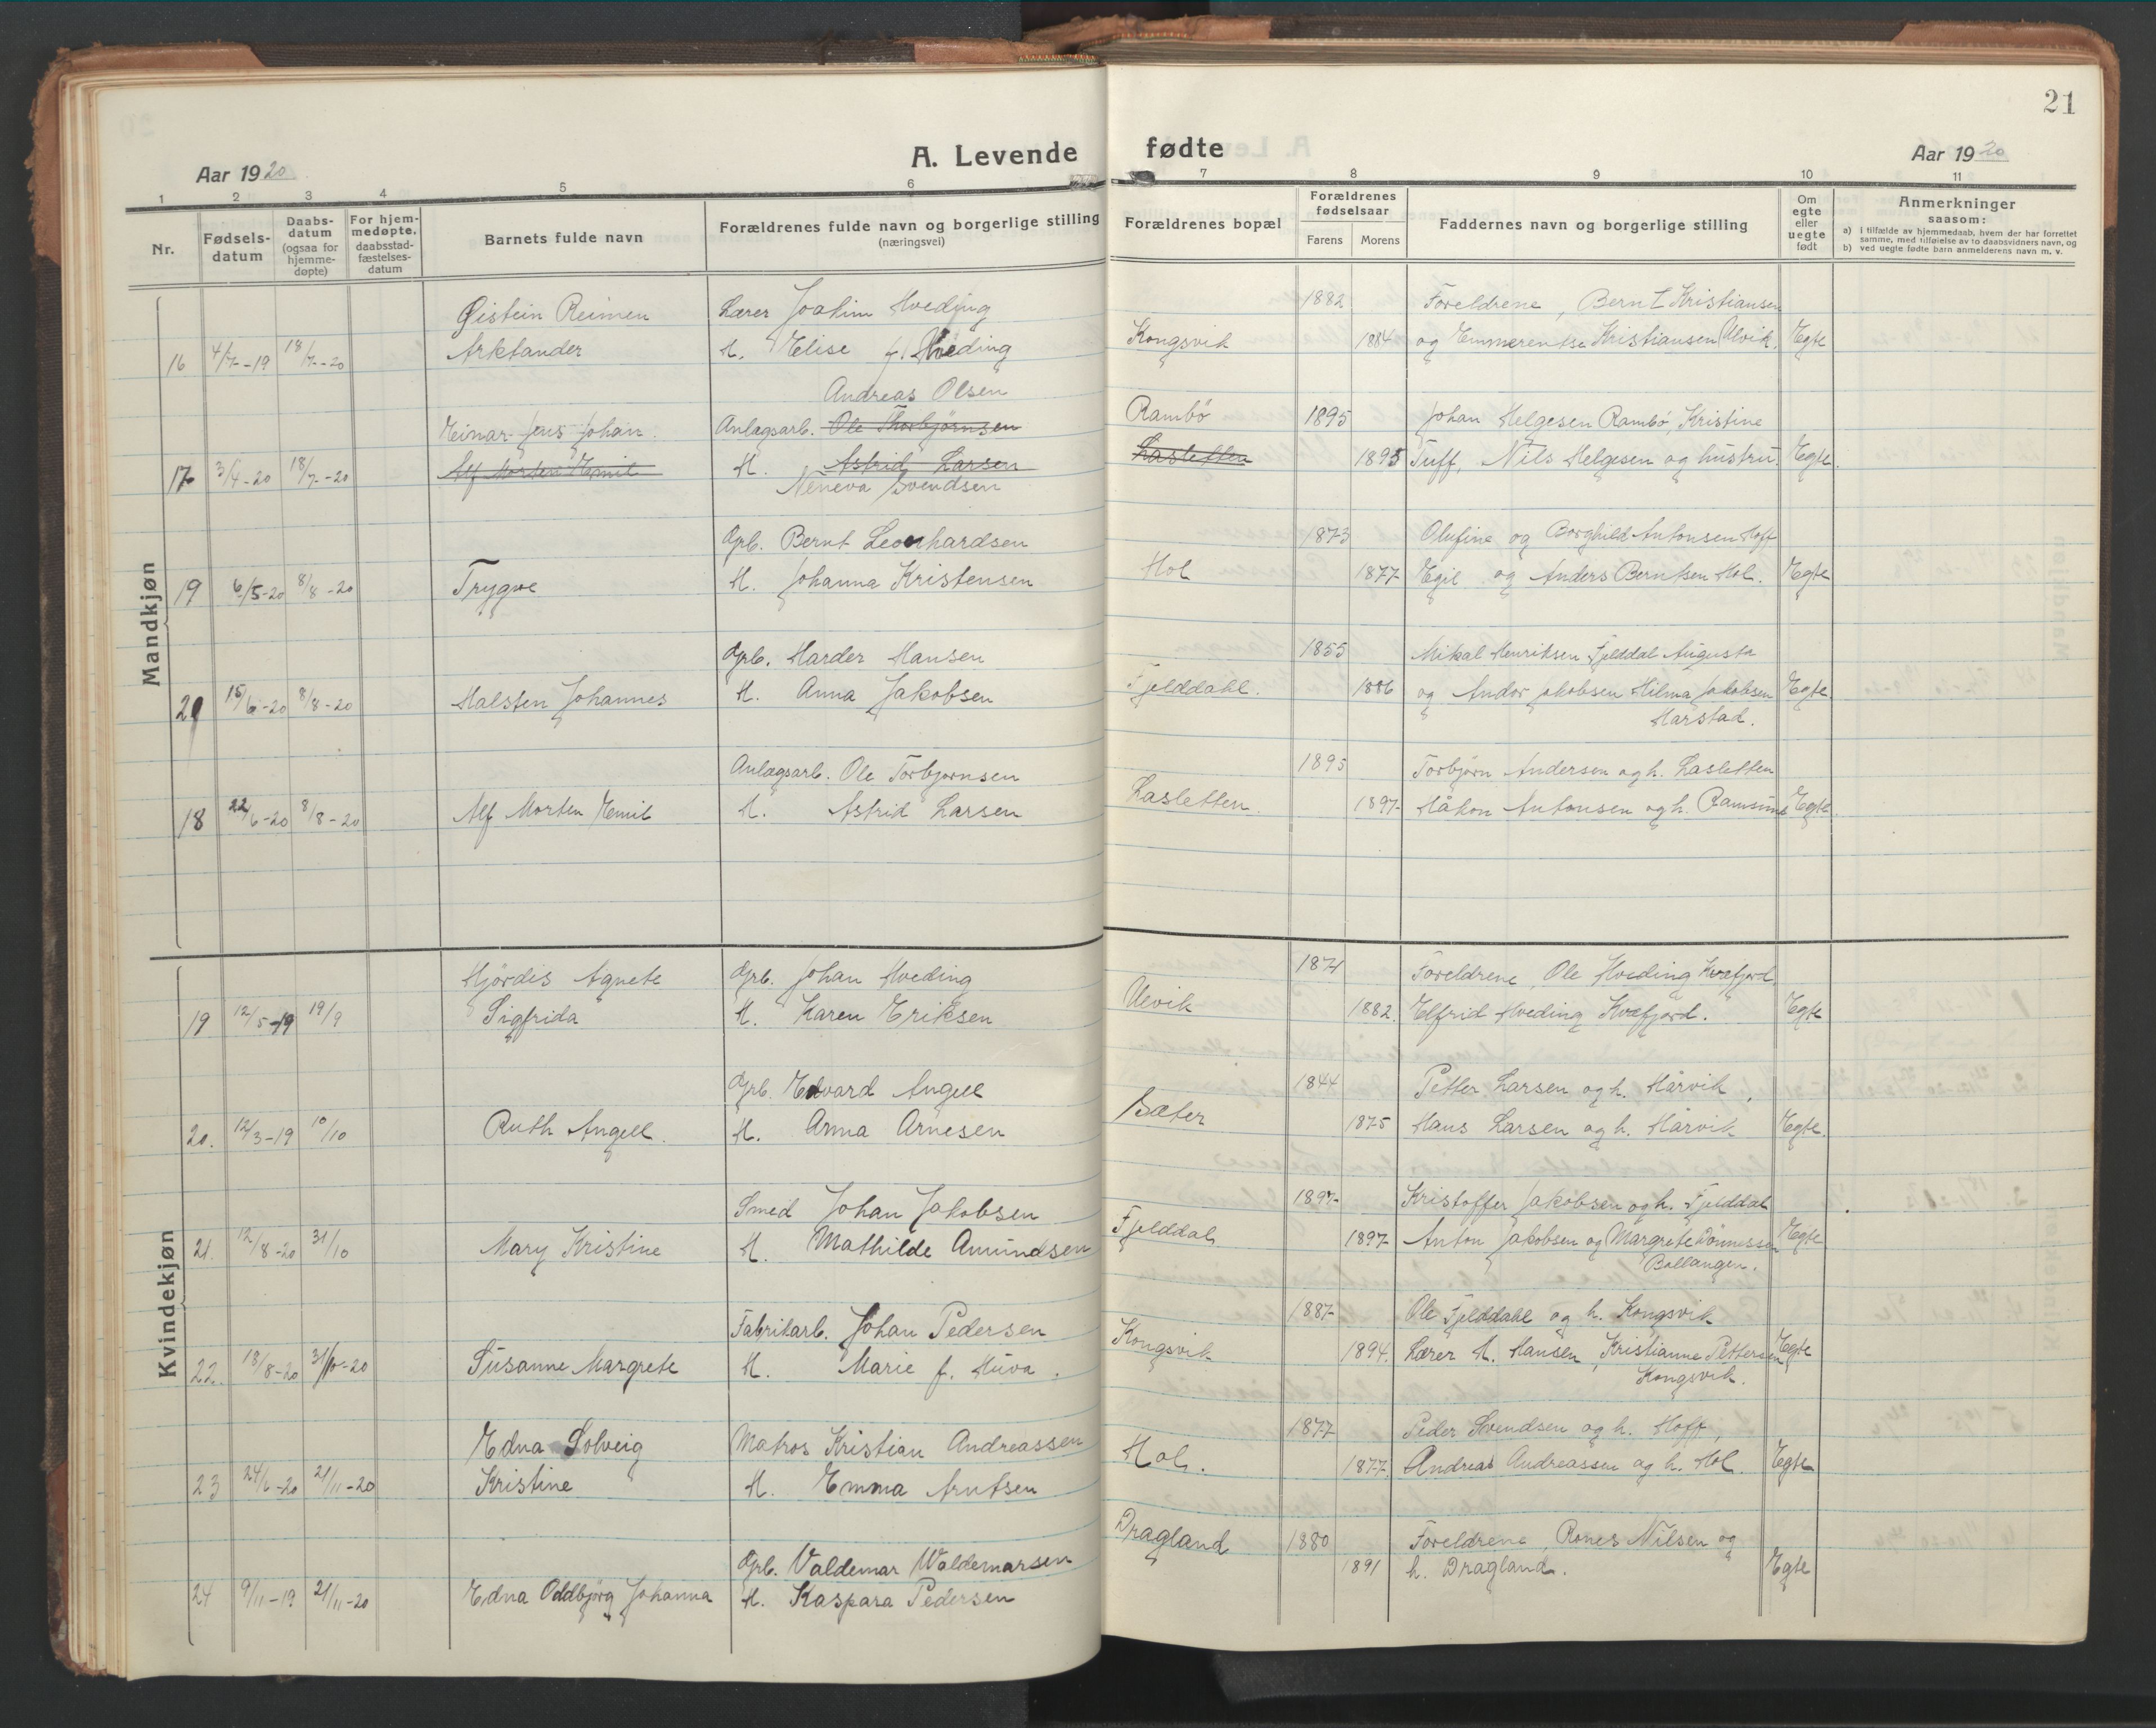 21
A. Levende fødte
Aar 1920
Aar 1920
1 2 3 4 5 6 7 8 9 10 11
Nr.
Fødsels-datum
Daabs-datum (ogsaa for hjemme-døpte)
For hjem-medøpte. daabsstad-fæstelses-datum
Barnets fulde navn
Forældrenes fulde navn og borgerlige stilling
(næringsvei)
Forældrenes bopæl
Forældrenes fødselsaar
Farens Morens
Faddernes navn og borgerlige stilling
Om egte eller uegte født
Anmerkninger
saasom:
a) i tilfælde av hjemmedaab, hvem der har forrettet samme, med tilføielse av to daabsvidners navn, og
b) ved uegte fødte barn anmelderens navn m. v.
Mandkjøn
Øistein Reimen Lærer Joakim Hveding 1882 Foreldrene, Bernt Kristiansen
16 4/7-19 18/7-20 Arktander H. Elise f. Hveding Kongsvik 1884 og Emmerentse Kristiansen Ulvik. Egte
Andreas Olsen
Einar Jens Johan Anlagsarb. Ole Thorbjørnsen Rambö 1895 Johan Helgesen Rambö, Kristine
17 3/4-20 18/7-20 Alf Morten Emil H. Astrid Larsen Lasletten 1895 Tuff, Nils Helgesen og hustru. Egte.
Neneva Svendsen
Gpb. Bernt Leonhardsen 1873 Olufine og Borghild Antonsen Hoff
19 6/5-20 8/8-20 Trygve H. Johanna Kristensen Hol 1877 Egil og Anders Berntsen Hol. Egte
Gpb. Harder Hansen 1855 Mikal Henriksen Fjelddal Augusta
20 15/6-20 8/8-20 Halsten Johannes H. Anna Jakobsen Fjelddahl. 1886 og Andor Jakobsen Hilma Jakobsen Egte.
Harstad.
Anlagsarb. Ole Torbjørnsen 1895 Torbjørn Andersen og h. Lasletten
18 22/6-20 8/8-20 Alf Morten Emil H. Astrid Larsen Lasletten. 1897 Håkon Antonsen og h. Ramsund Egte.
Kvindekjøn
Hjördis Agnete Gpb. Johan Hveding 1871 Foreldrene, Ole Hveding Kvæfjord.
19 12/5-19 19/9 Sigfrida H. Karen Eriksen Ulvik 1882. Elfrid Hveding Kvæfjord. Egte
Gpb. Edvard Angell 1844 Petter Larsen og h. Hårvik,
20. 12/3-19 10/10 Ruth Angell. H. Anna Arnesen Sæter 1875 Hans Larsen og h. Hårvik Egte.
Smed Johan Jakobsen 1897 Kristoffer Jakobsen og h. Fjelddal
21. 12/8-20 31/10 Mary Kristine H. Mathilde Amundsen Fjelddal 1897 Anton Jakobsen og Margrete Dönnessen Egte
Ballangen.
Fabrikarb. Johan Pedersen 1887 Ole Fjelddahl og h. Kongsvik
22. 18/8-20 31/10-20 Susanne Margrete H. Marie f. Huva. Kongsvik 1894. Lærer H. Hansen, Kristianne Pettersen Egte
Kongsvik.
Edna Solveig Matros Kristian Andreassen 1877 Peder Svendsen og h. Hoff,
23 24/6-20 21/11-20 Kristine H. Emma Arntsen Hol. 1877. Andreas Andreassen og h. Hol. Egte
Gpb. Valdemar Waldemarsen Dragland 1880 Foreldrene, Rones Nilsen og
24 9/11-19 21/11-20 Edna Oddbjörg Johanna H. Kaspara Pedersen 1891 h. Dragland. Egte